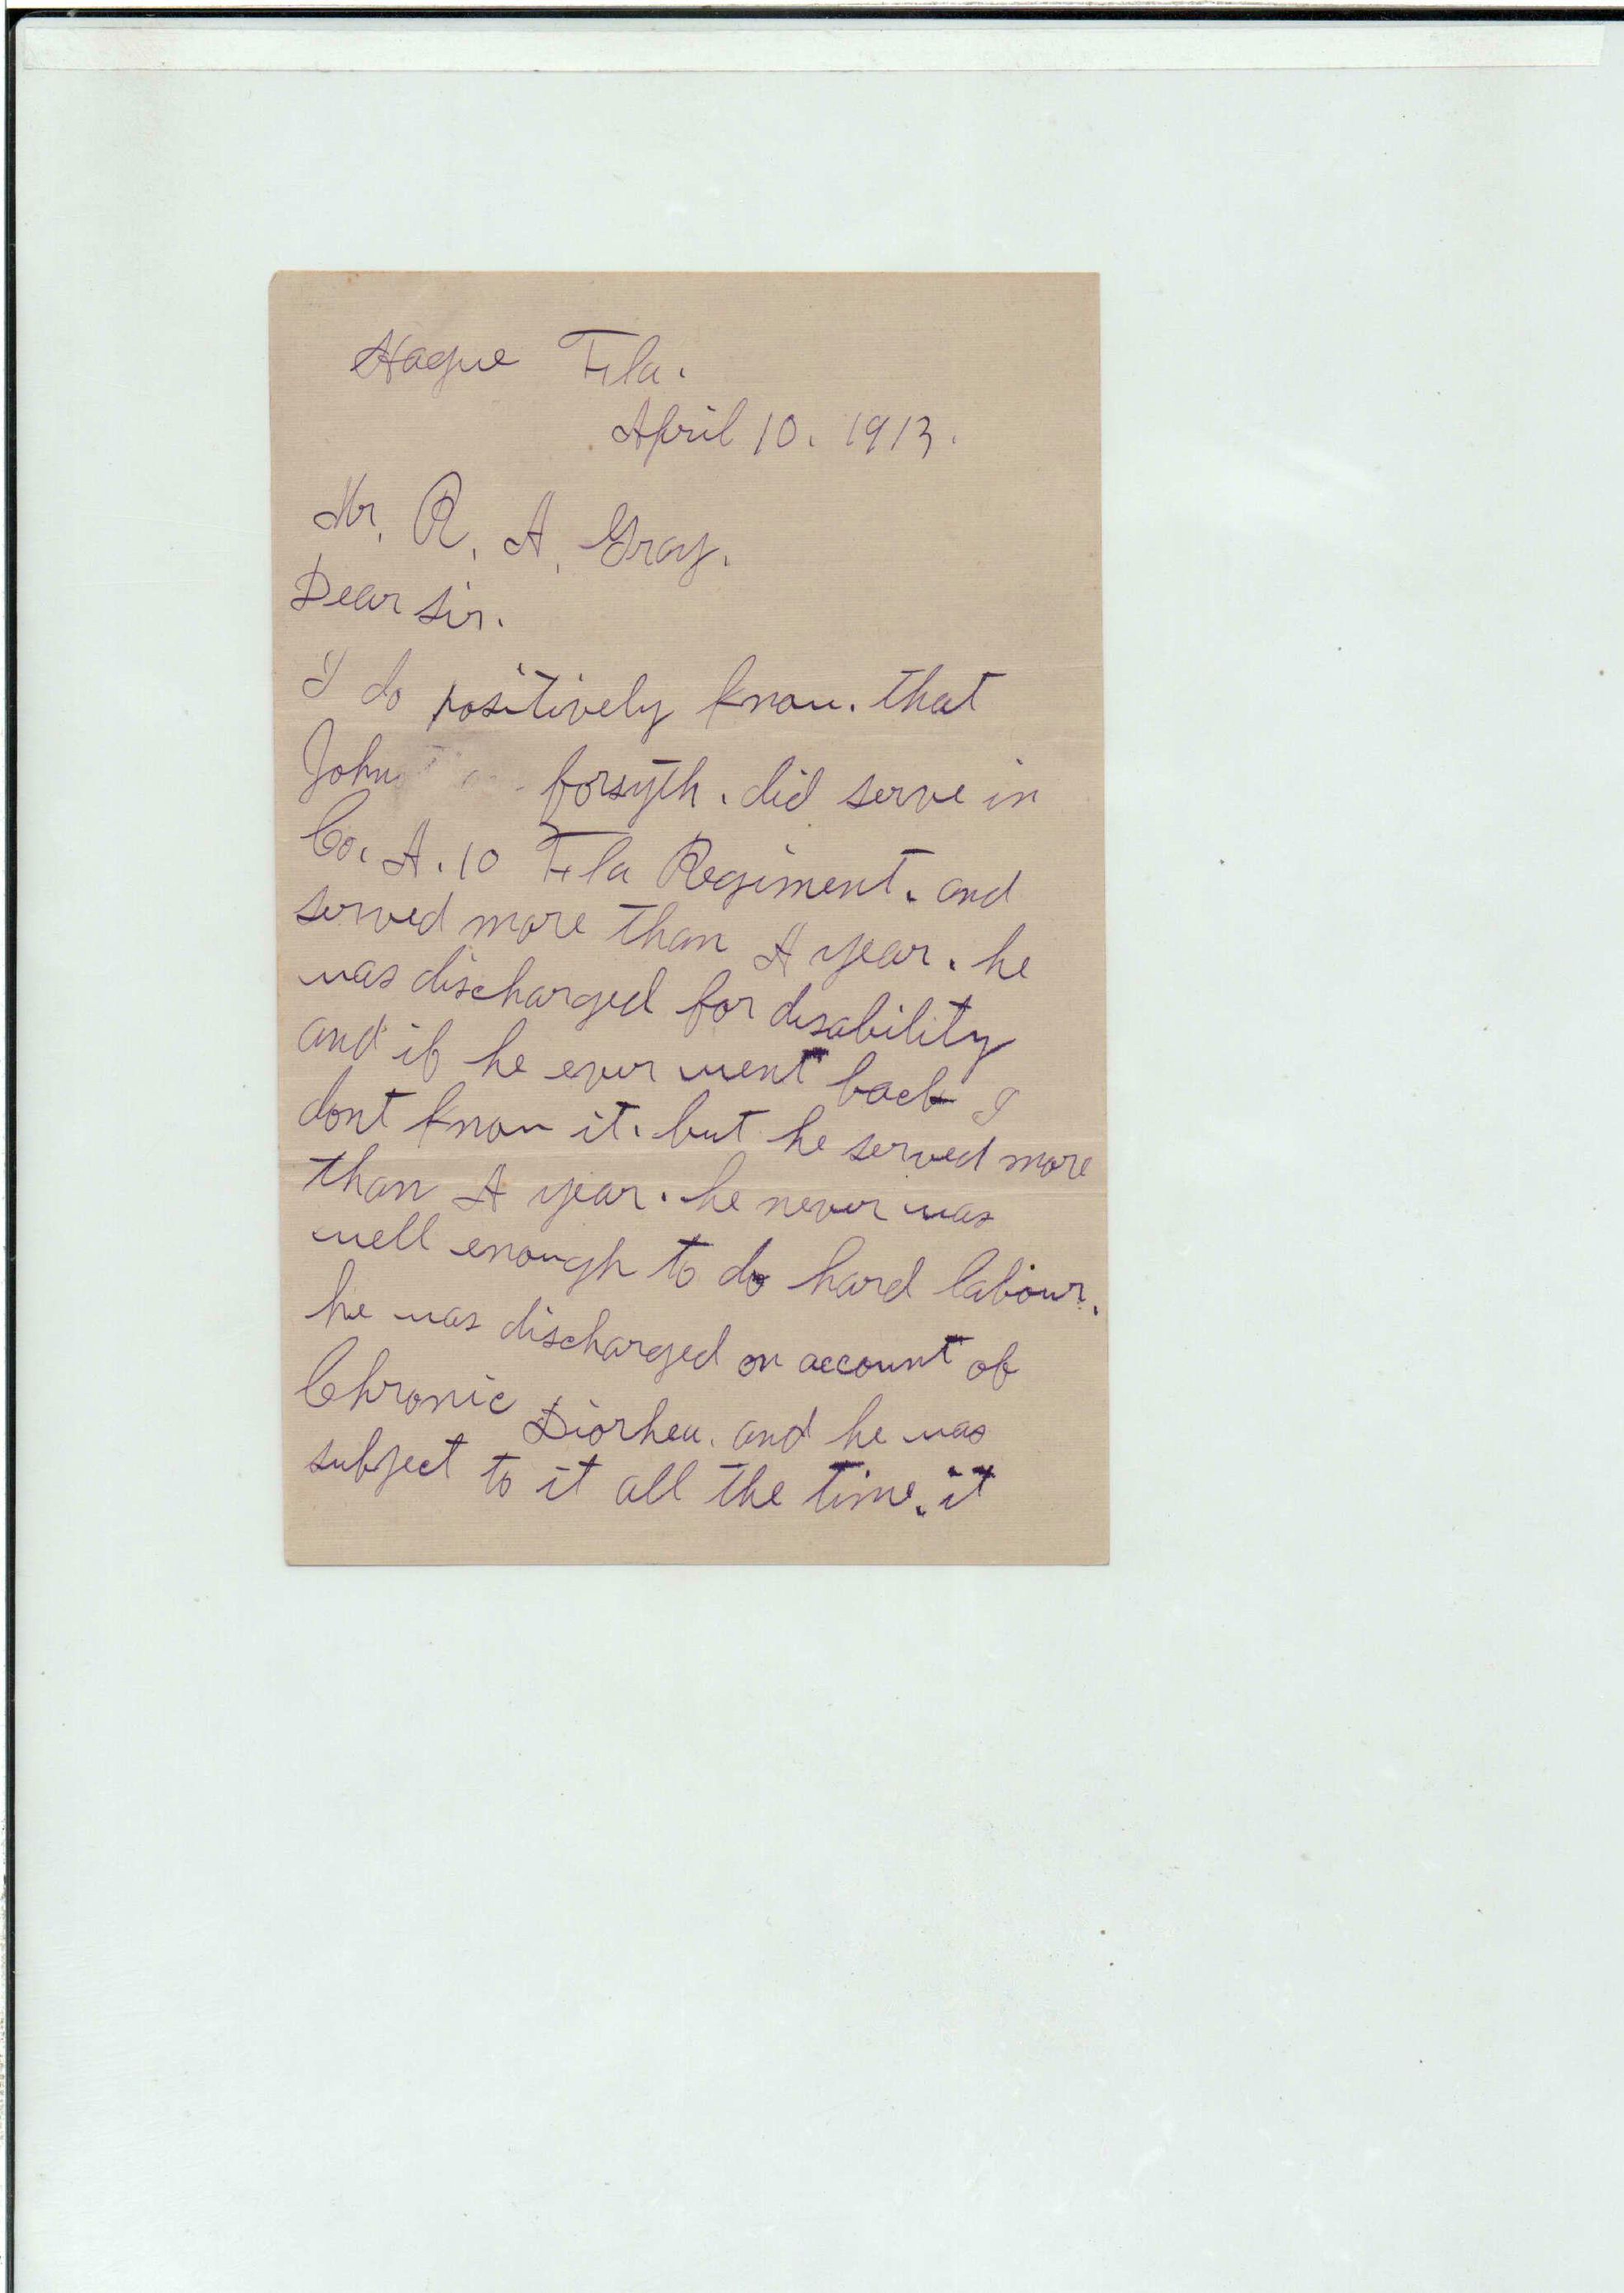 Hague Fla.
April 10. 1913.
Mr. R. A. Gray.
Dear Sir.
I do positively know. that
John forsyth. did serve in
Co. A. 10 Fla Regiment. and
served more than A year. he
was discharged for disability
and if he ever went back I
dont know it. but he served more
than A year. he never was
well enough to do hard labour.
he was discharged on account of
Chronic Diorhea. and he was
subject to it all the time. it